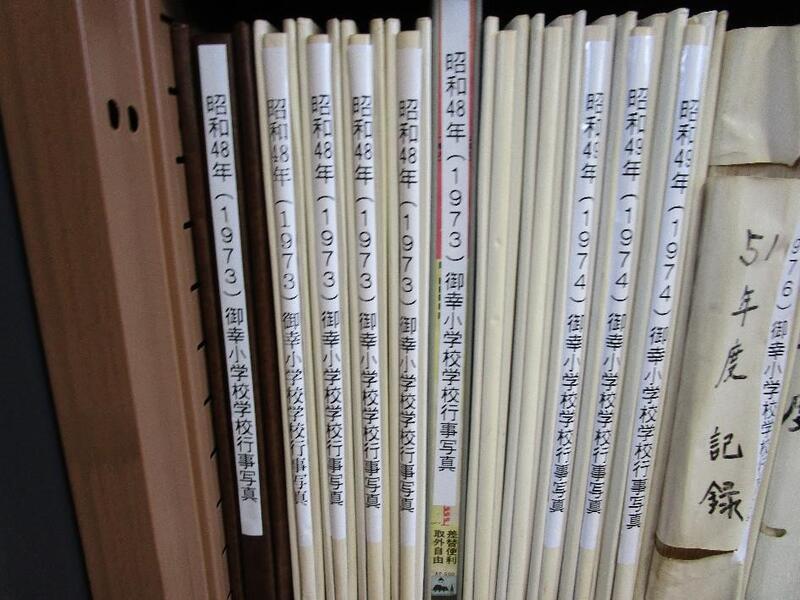 昭和48年(1973)御幸小学校学校行事写真
昭和48年(1973)御幸小学校学校行事写真
昭和48年(1973)御幸小学校学校行事写真
昭和48年(1973)御幸小学校学校行事写真
昭和48年(1973)御幸小学校学校行事写真
昭和48年(1973)御幸小学校学校行事写真
差替便利
取外自由
昭和49年(1974)御幸小学校学校行事写真
昭和49年(1974)御幸小学校学校行事写真
昭和49年(1974)御幸小学校学校行事写真
51年度記録
976)御幸小学校学校行